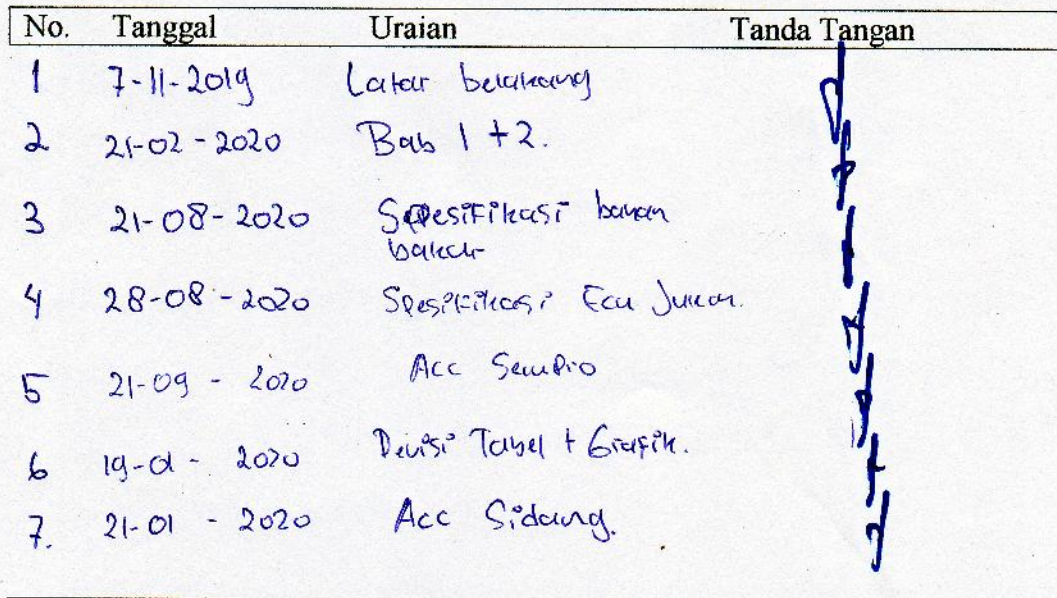 No. Tanggal Uraian Tanda Tangan
1 7-11-2019 Latar belakang
2 21-02-2020 Bab 1 + 2.
3 21-08-2020 Spesifikasi bahan
bakar
4 28-08-2020 Spesifikasi Ecu Juken.
5 21-09-2020 Acc Sempro
6 19-01-2020 Revisi Tabel + Grafik.
7. 21-01-2020 Acc Sidang.